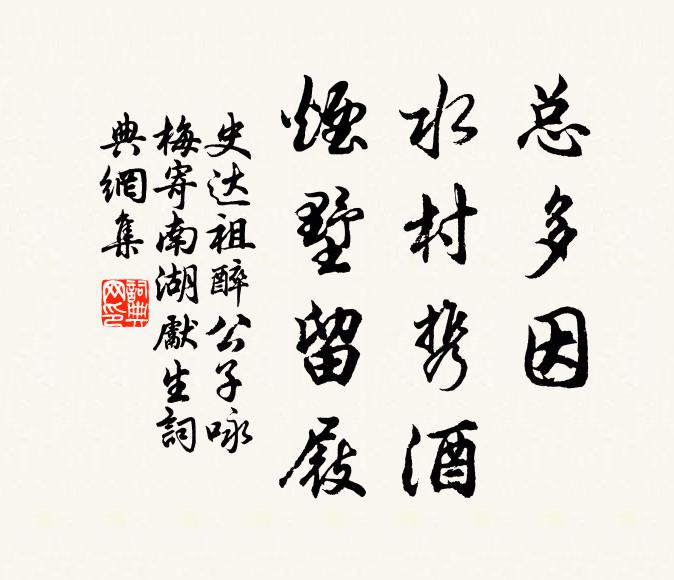 总多因
水村携酒
烟墅留屐
史达祖醉公子咏
梅寄南湖獻生詞
典網集
詞典网印